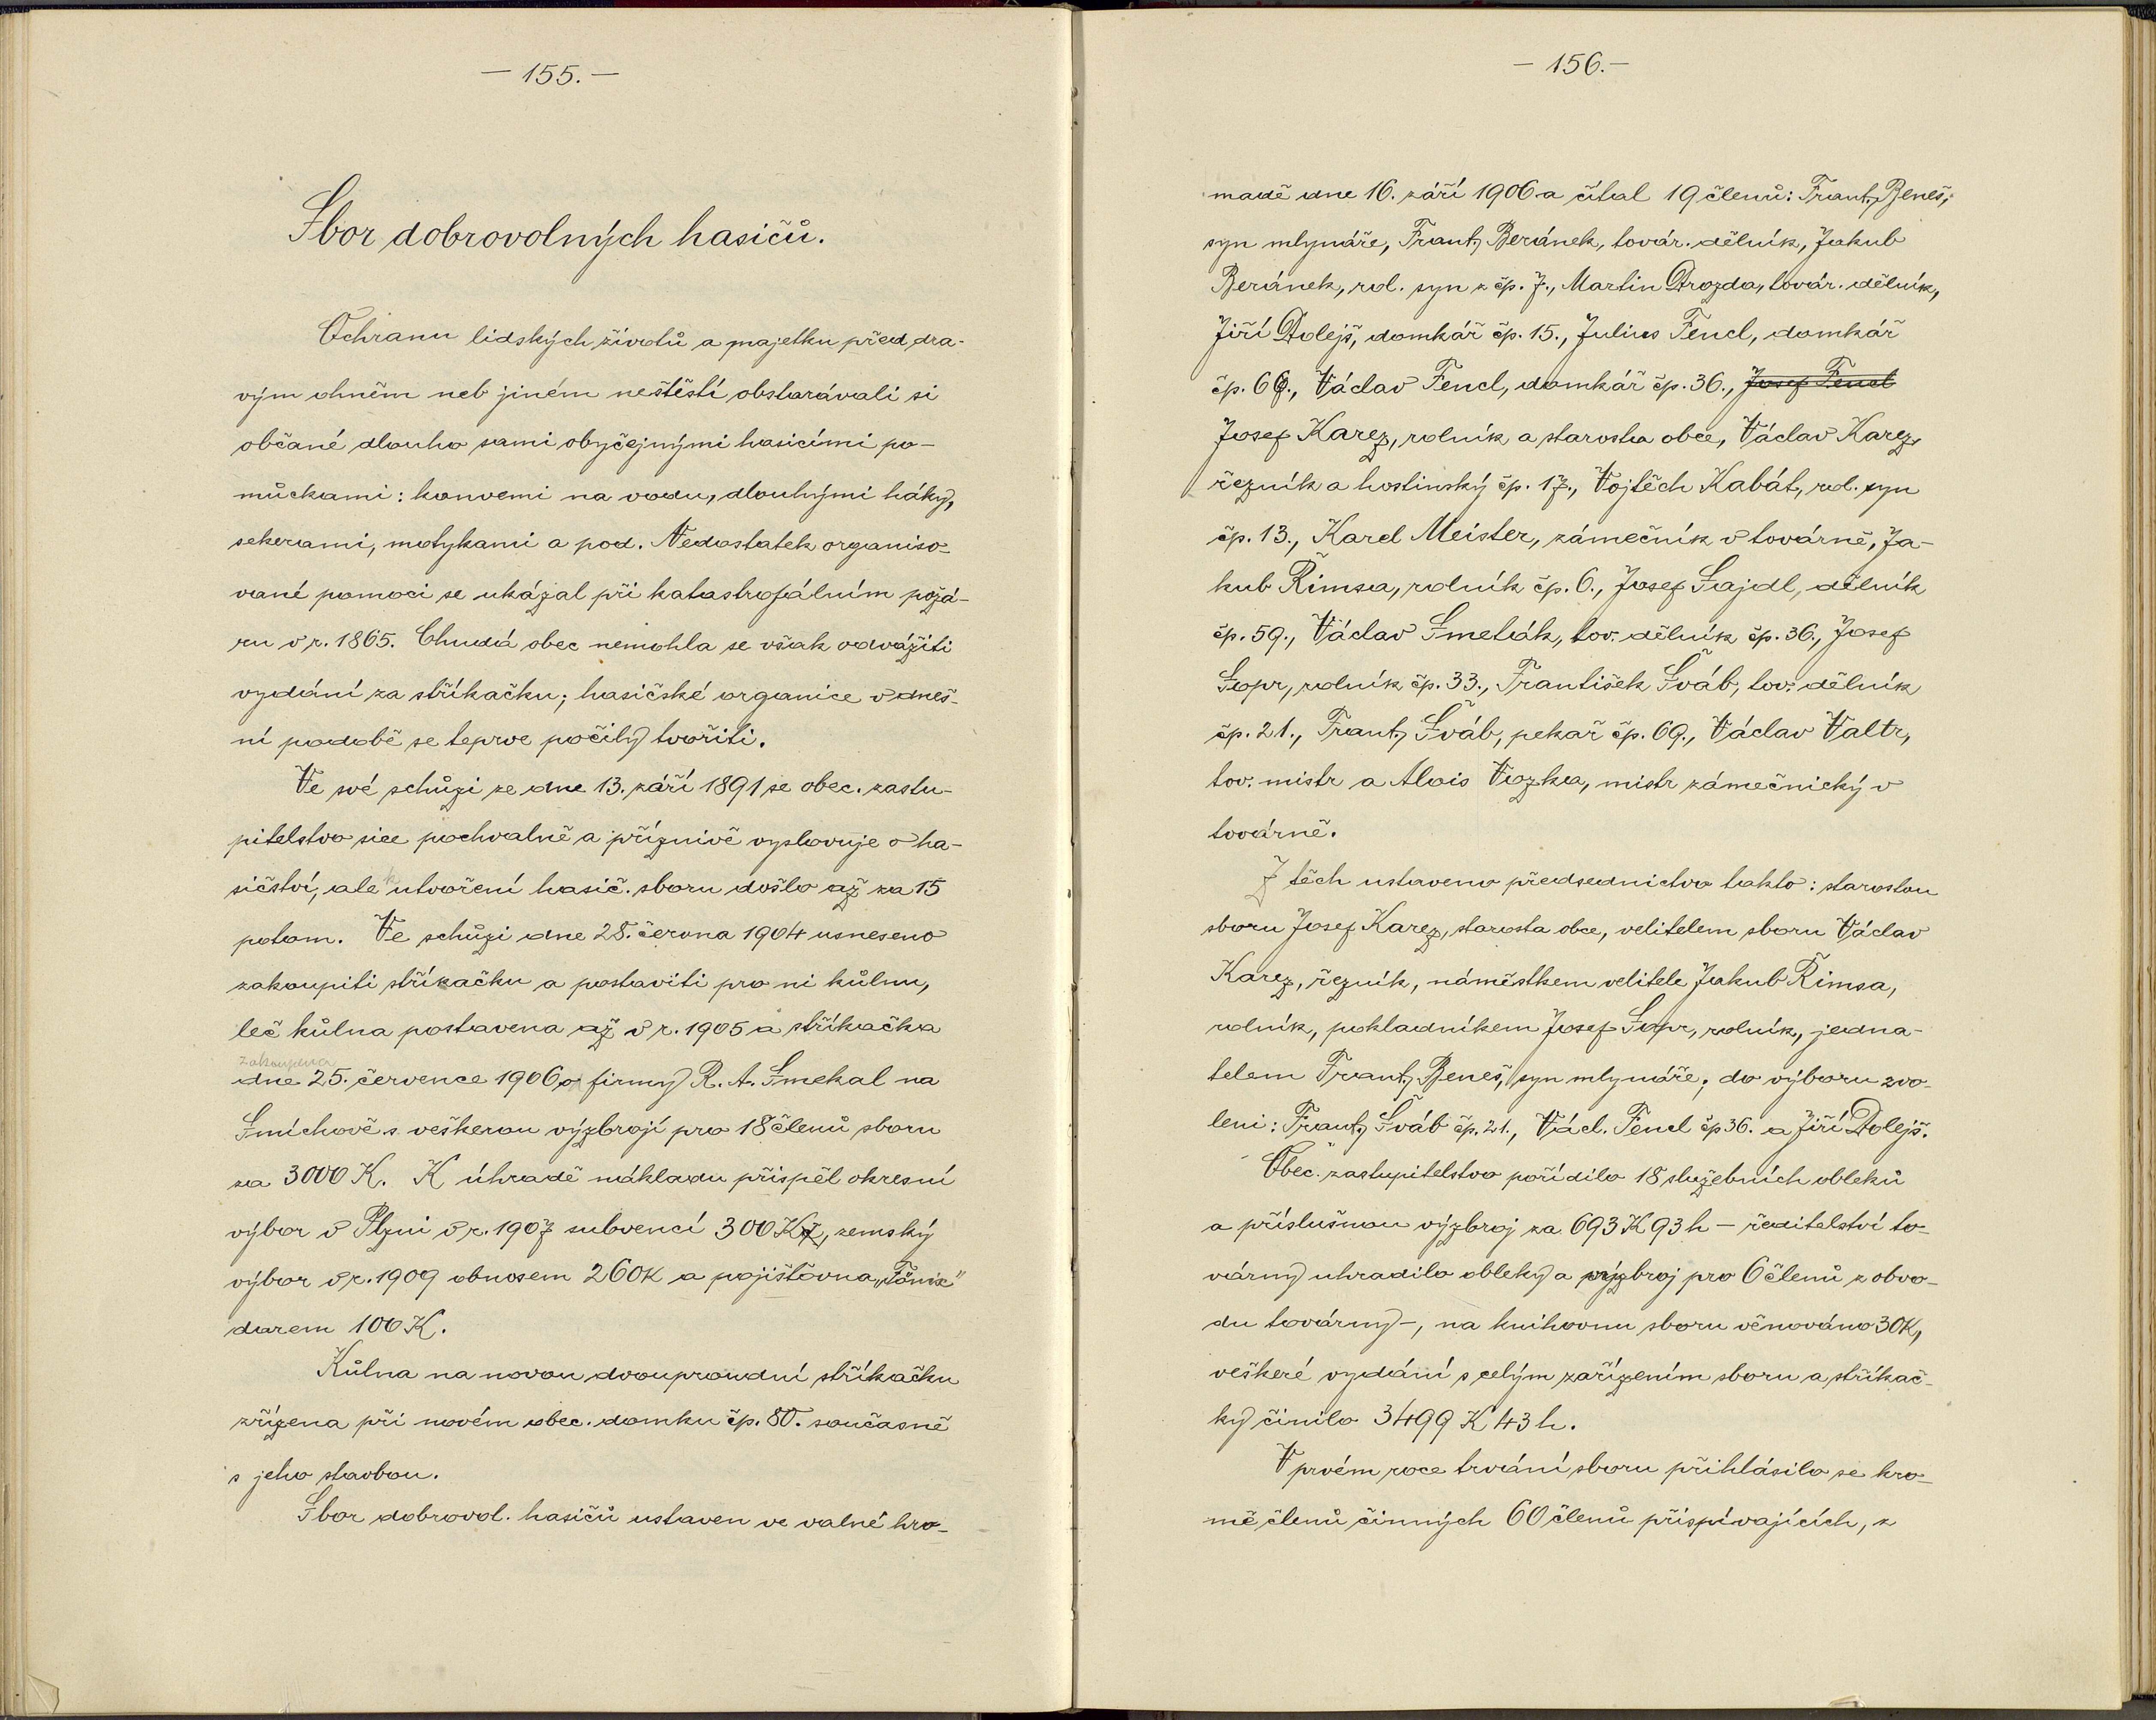 — 155. —
Sbor dobrovolných hasičů.
Ochranu lidských životů a majetku před dra-
vým ohněm neb jiném neštěstí obstarávali si
občané dlouho sami obyčejnými hasicími po-
můckami: konvemi na vodu, dlouhými háky,
sekerami, motykami a pod. Nedostatek organiso-
vané pomoci se ukázal při katastrofálním požá-
ru v r. 1865. Chudá obec nemohla se však odvážiti
vydání za stříkačku; hasičské organice v dneš-
ní podobě se teprve počily tvořiti.
Ve své schůzi ze dne 13. září 1891 se obec. zastu-
pitelstvo sice pochvalně a příznivě vyslovuje o ha-
sičství, ale k utvoření hasič. sboru došlo až za 15
potom. Ve schůzi dne 28. června 1904 usneseno
zakoupiti stříkačku a postaviti pro ni kůlnu,
leč kůlna postavena až v r. 1905 a stříkačka
zakoupena
dne 25. července 1906 o firmy R. A. Smekal na
Smíchově s veškerou výzbrojí pro 18 členů sboru
za 3000 K. K úhradě nákladu přispěl okresní
výbor v Plzni v r. 1907 subvencí 300 K, zemský
výbor v r. 1909 obnosem 260 K a pojišťovna „Fönix"
darem 100 K.
Kůlna na novou dvouproudní stříkačku
zřízena při novém obec. domku čp. 80. současně
s jeho stavbou.
Sbor dobrovol. hasičů ustaven ve valné hro-
— 156. —
madě dne 16. září 1906 a čítal 19 členů: Frant. Beneš,
syn mlynáře, Frant. Beránek, továr. dělník, Jakub
Beránek, rol. syn z čp. 7., Martin Drozda, továr. dělník,
Jiří Dolejš, domkář čp. 15., Julius Fencl, domkář
čp. 66., Václav Fencl, domkář čp. 36., Josef Fencl
Josef Karez, rolník a starosta obce, Václav Karez,
řezník a hostinský čp. 17., Vojtěch Kabát, rol. syn
čp. 13., Karel Meister, zámečník v továrně, Ja-
kub Řimsa, rolník čp. 6., Josef Sajdl, dělník
čp. 59., Václav Smeták, tov. dělník čp. 36., Josef
Sopr, rolník čp. 33., František Šváb, tov. dělník
čp. 21., Frant. Šváb, pekař čp. 69., Václav Valtr,
tov. mistr a Alois Vozka, mistr zámečnický v
továrně.
Z těch ustaveno předsednictvo takto: starostou
sboru Josef Karez, starosta obce, velitelem sboru Václav
Karez, řezník, náměstkem velitele Jakub Řimsa,
rolník, pokladníkem Josef Sopr, rolník, jedna-
telem Frant. Beneš, syn mlynáře; do výboru zvo-
leni: Frant. Šváb čp. 21., Václ. Fencl čp 36. a Jiří Dolejš.
Obec. zastupitelstvo pořídilo 18 služebních obleků
a příslušnou výzbroj za 693 K 93 h — ředitelství to-
várny uhradilo obleky a výzbroj pro 6 členů z obvo-
du továrny —, na knihovnu sboru věnováno 30 K,
veškeré vydání s celým zařízením sboru a stříkač-
ky činilo 3499 K 43 h.
V prvém roce trvání sboru přihlásilo se kro-
mě členů činných 60 členů přispívajících, z